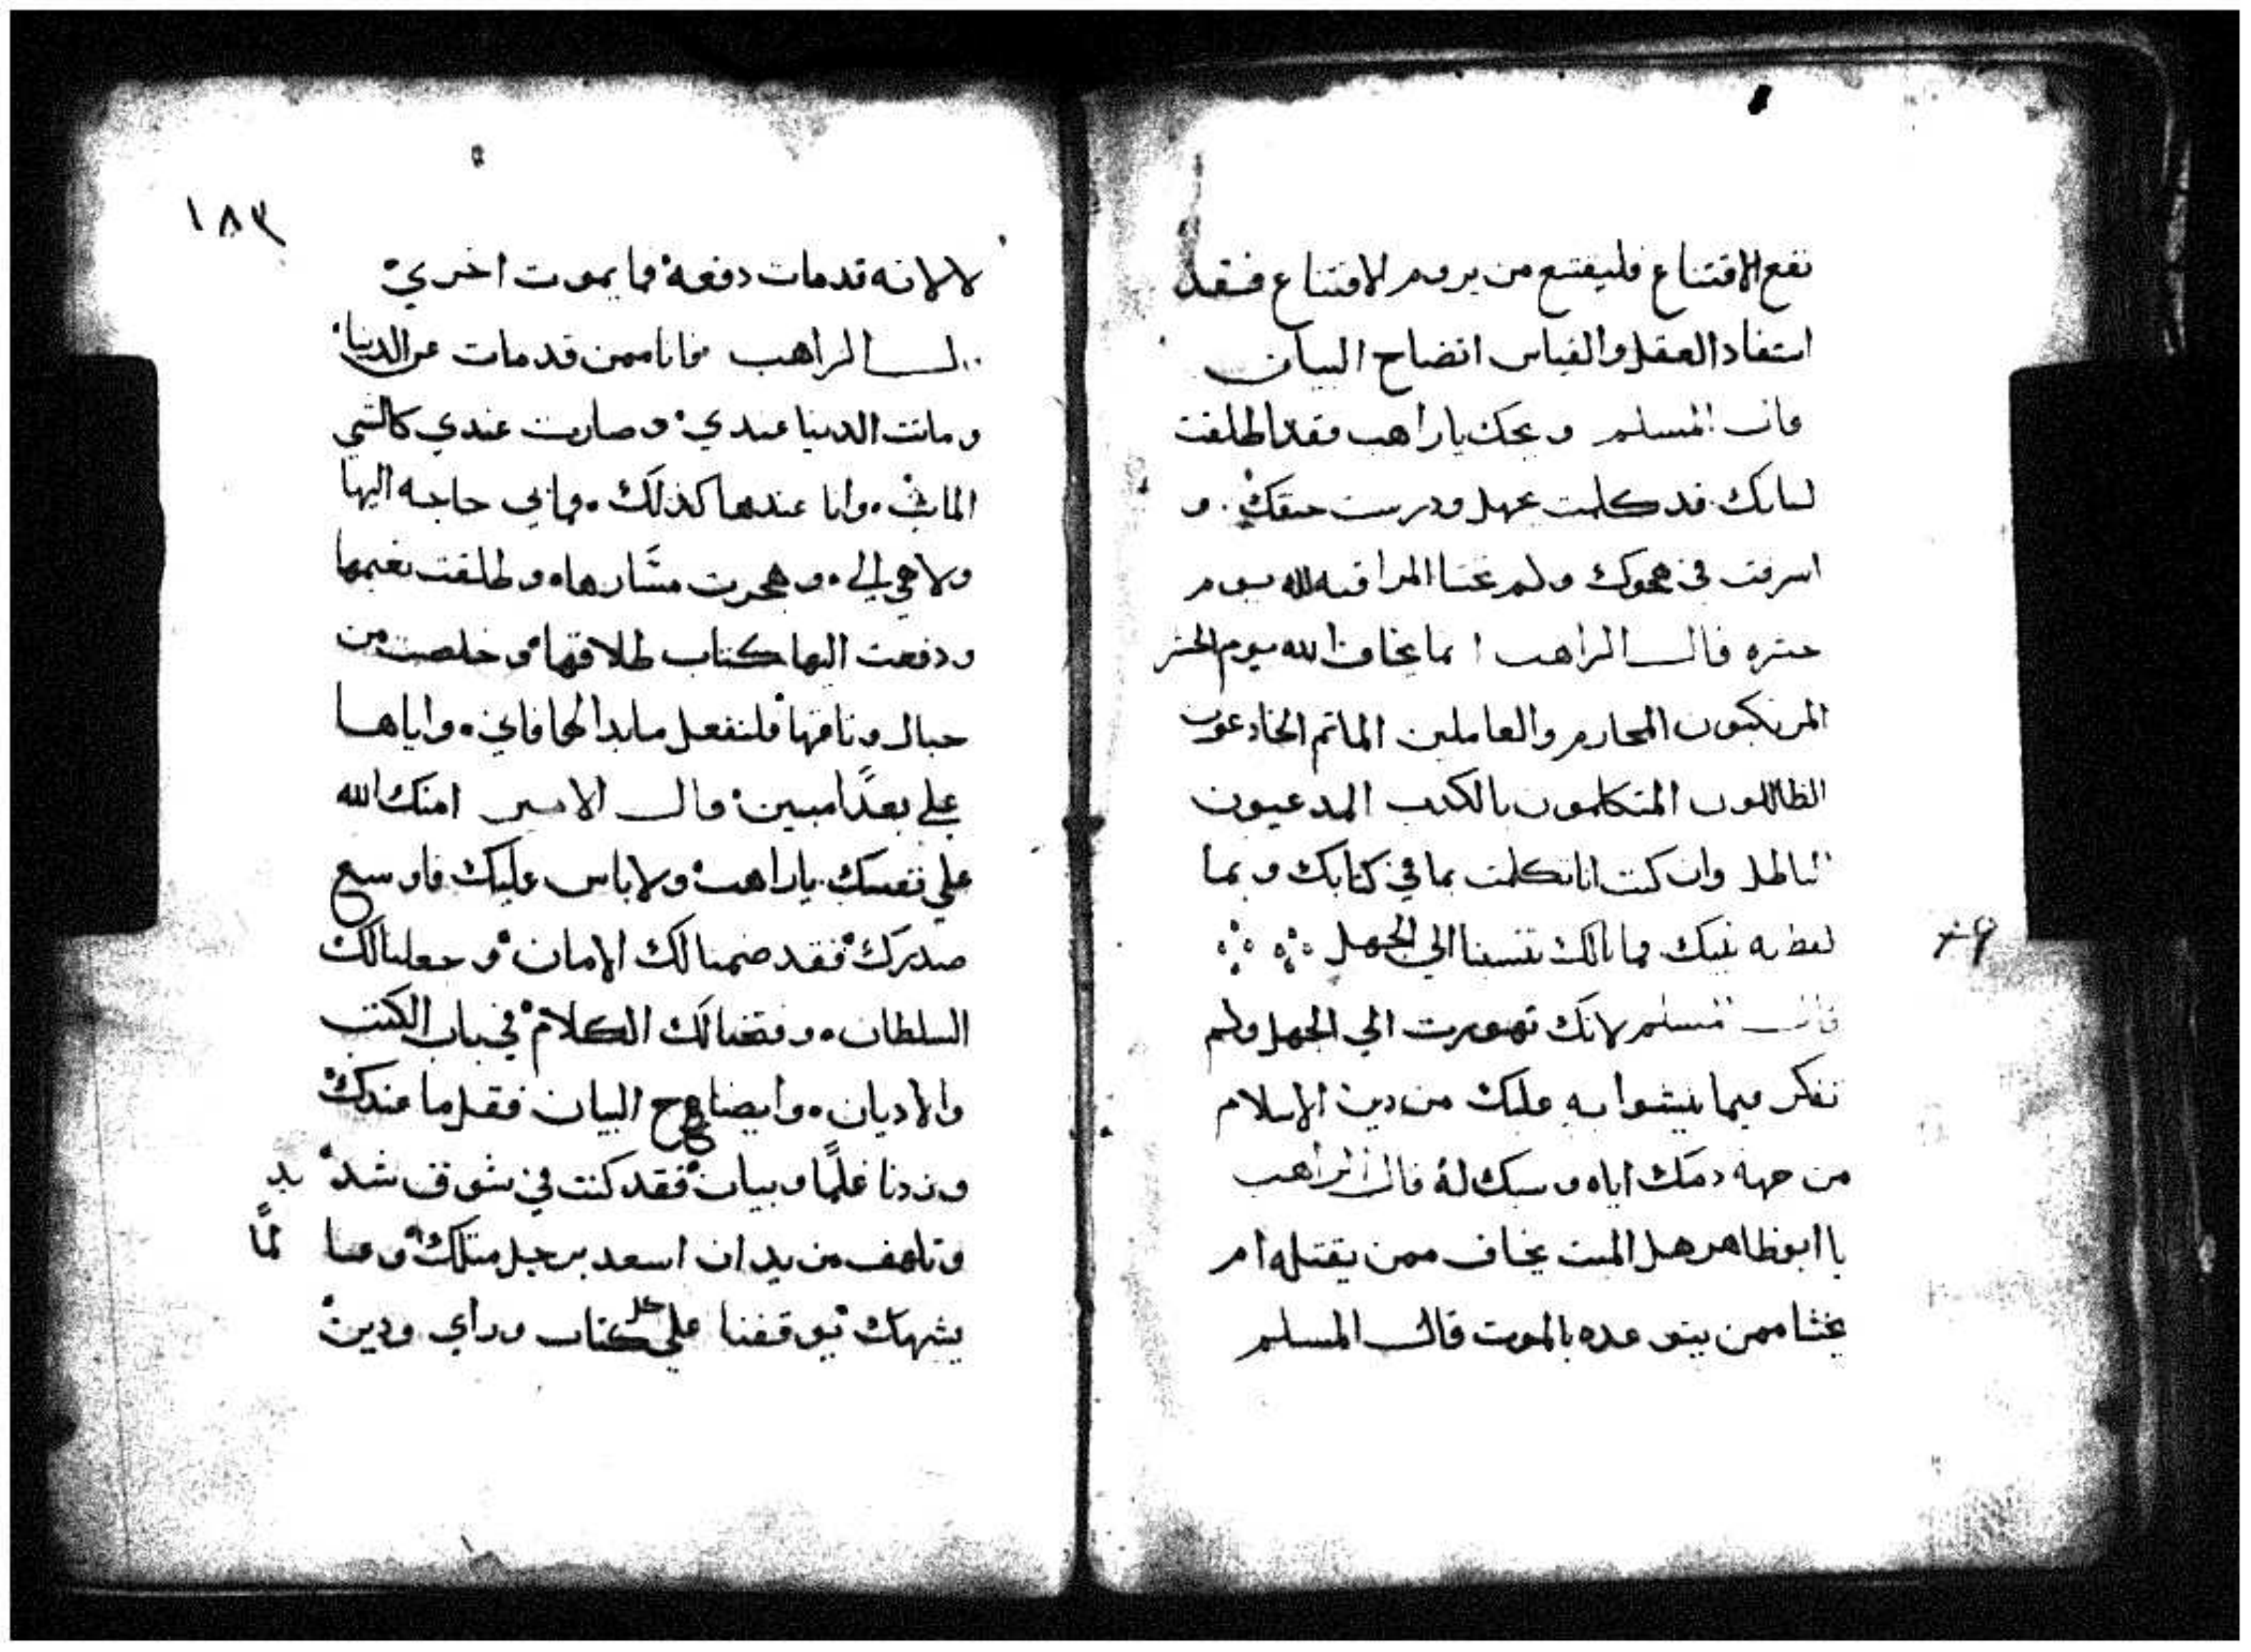 نقع الاقتناع فليقتنع من يروم الاقتناع فقد
استفاد العقل والقياس اتضاح البيان
قال المسلم ويحك ياراهب فقد اطلقت
لسانك قد كلمت بجهل ودرست حنقك و
اسرفت في هجوك ولم تخشا المراقبه لله يوم
حشره قال الراهب انما يخاف الله يوم الحشر
المرتكبون المحارم والعاملين الماتم الخادعون
الظالمون المتكلمون بالكدب المدعيون
بالباطل وان كنت انا تكلمت بما في كتابك وبما
لفظ به نبيك فما بالك تنسبنا الي الجهل
قال المسلم لانك تهورت الي الجهل ولم
تفكر فيما ينشوا به عليك من دين الاسلام
من جهه دمك اياه وسبك له قال الراهب
يا ابوظاهر هل الميت يخاف ممن يقتله ام
يخشا ممن يتوعده بالموت قال المسلم
١٨٣
لا لانه قد مات دفعة فما يموت اخري
قال الراهب فانا ممن قد مات عن الدنيا
وماتت الدنيا عندي وصارت عندي كالشي
المايت وانا عندها كذلك فما بي حاجه اليها
ولا هي الي وهجرت مشارها وطلقت نعيمها
ودفعت اليها كتاب طلاقها وخلصت من
حبال وثاقها فلتفعل ما بدا لها فاني واياها
علي بعدًا مبين قال الامير امنك الله
علي نفسك ياراهب ولا باس عليك فاوسع
صدرك فقد ضمنا لك الامان وجعلنا لك
السلطان وفتحنا لك الكلام في باب الكتب
والاديان وايضاح البيان فقل ما عندك
وزدنا علمًا وبيان فقد كنت في شوق شديد
وتلهف من يدان اسعد برجل مثلك وفينا لمًا
يشبهك توقفنا علي كل كتاب وراي ودين